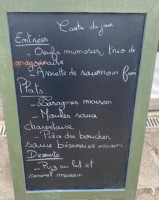 Carte du jour
Entrées
- Oeufs mimosas, trio de
mayonnaise
- Assiette de saumon fumé
Plats
- Lasagnes maison
- Moules sauce
charentaise
- Pièce du boucher
sauce béarnaise maison
Desserts
- Riz au lait et
caramel maison